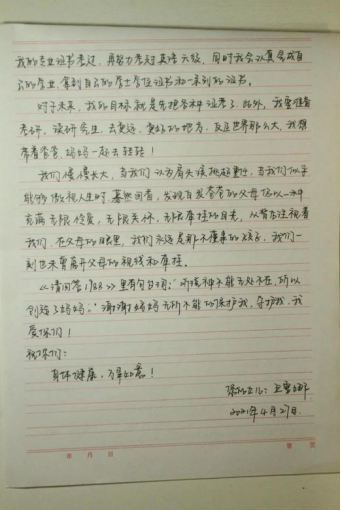 我的专业证书考过，再努力考过英语六级，同时我会认真完成自
己的学业，拿到自己的学士学位证书和一系列的证书。
对于未来，我的目标就是先把各种证考了。此外，我要准备
考研，读研究生，去更远、更好的地方，反正世界那么大，我想
带着爸爸、妈妈一起去转转！
我们慢慢长大，当我们认为肩头该挑起重任，当我们似乎
能够傲视人生时，蓦然回首，发现白发苍苍的父母仍以一种
充满无限怜爱、无限关怀、无限牵挂的目光，从背后注视着
我们，在父母的眼里，我们永远是那不懂事的孩子，我们一
刻也未曾离开父母的视线和牵挂。
《请回答1988》里有句台词：“听说神不能无处不在，所以
创造了妈妈。”谢谢妈妈无所不能的保护我、守护我，我
爱你们！
祝你们：
身体健康，万事如意！
你的女儿：
2021年4月27日
年 月 日
第 页